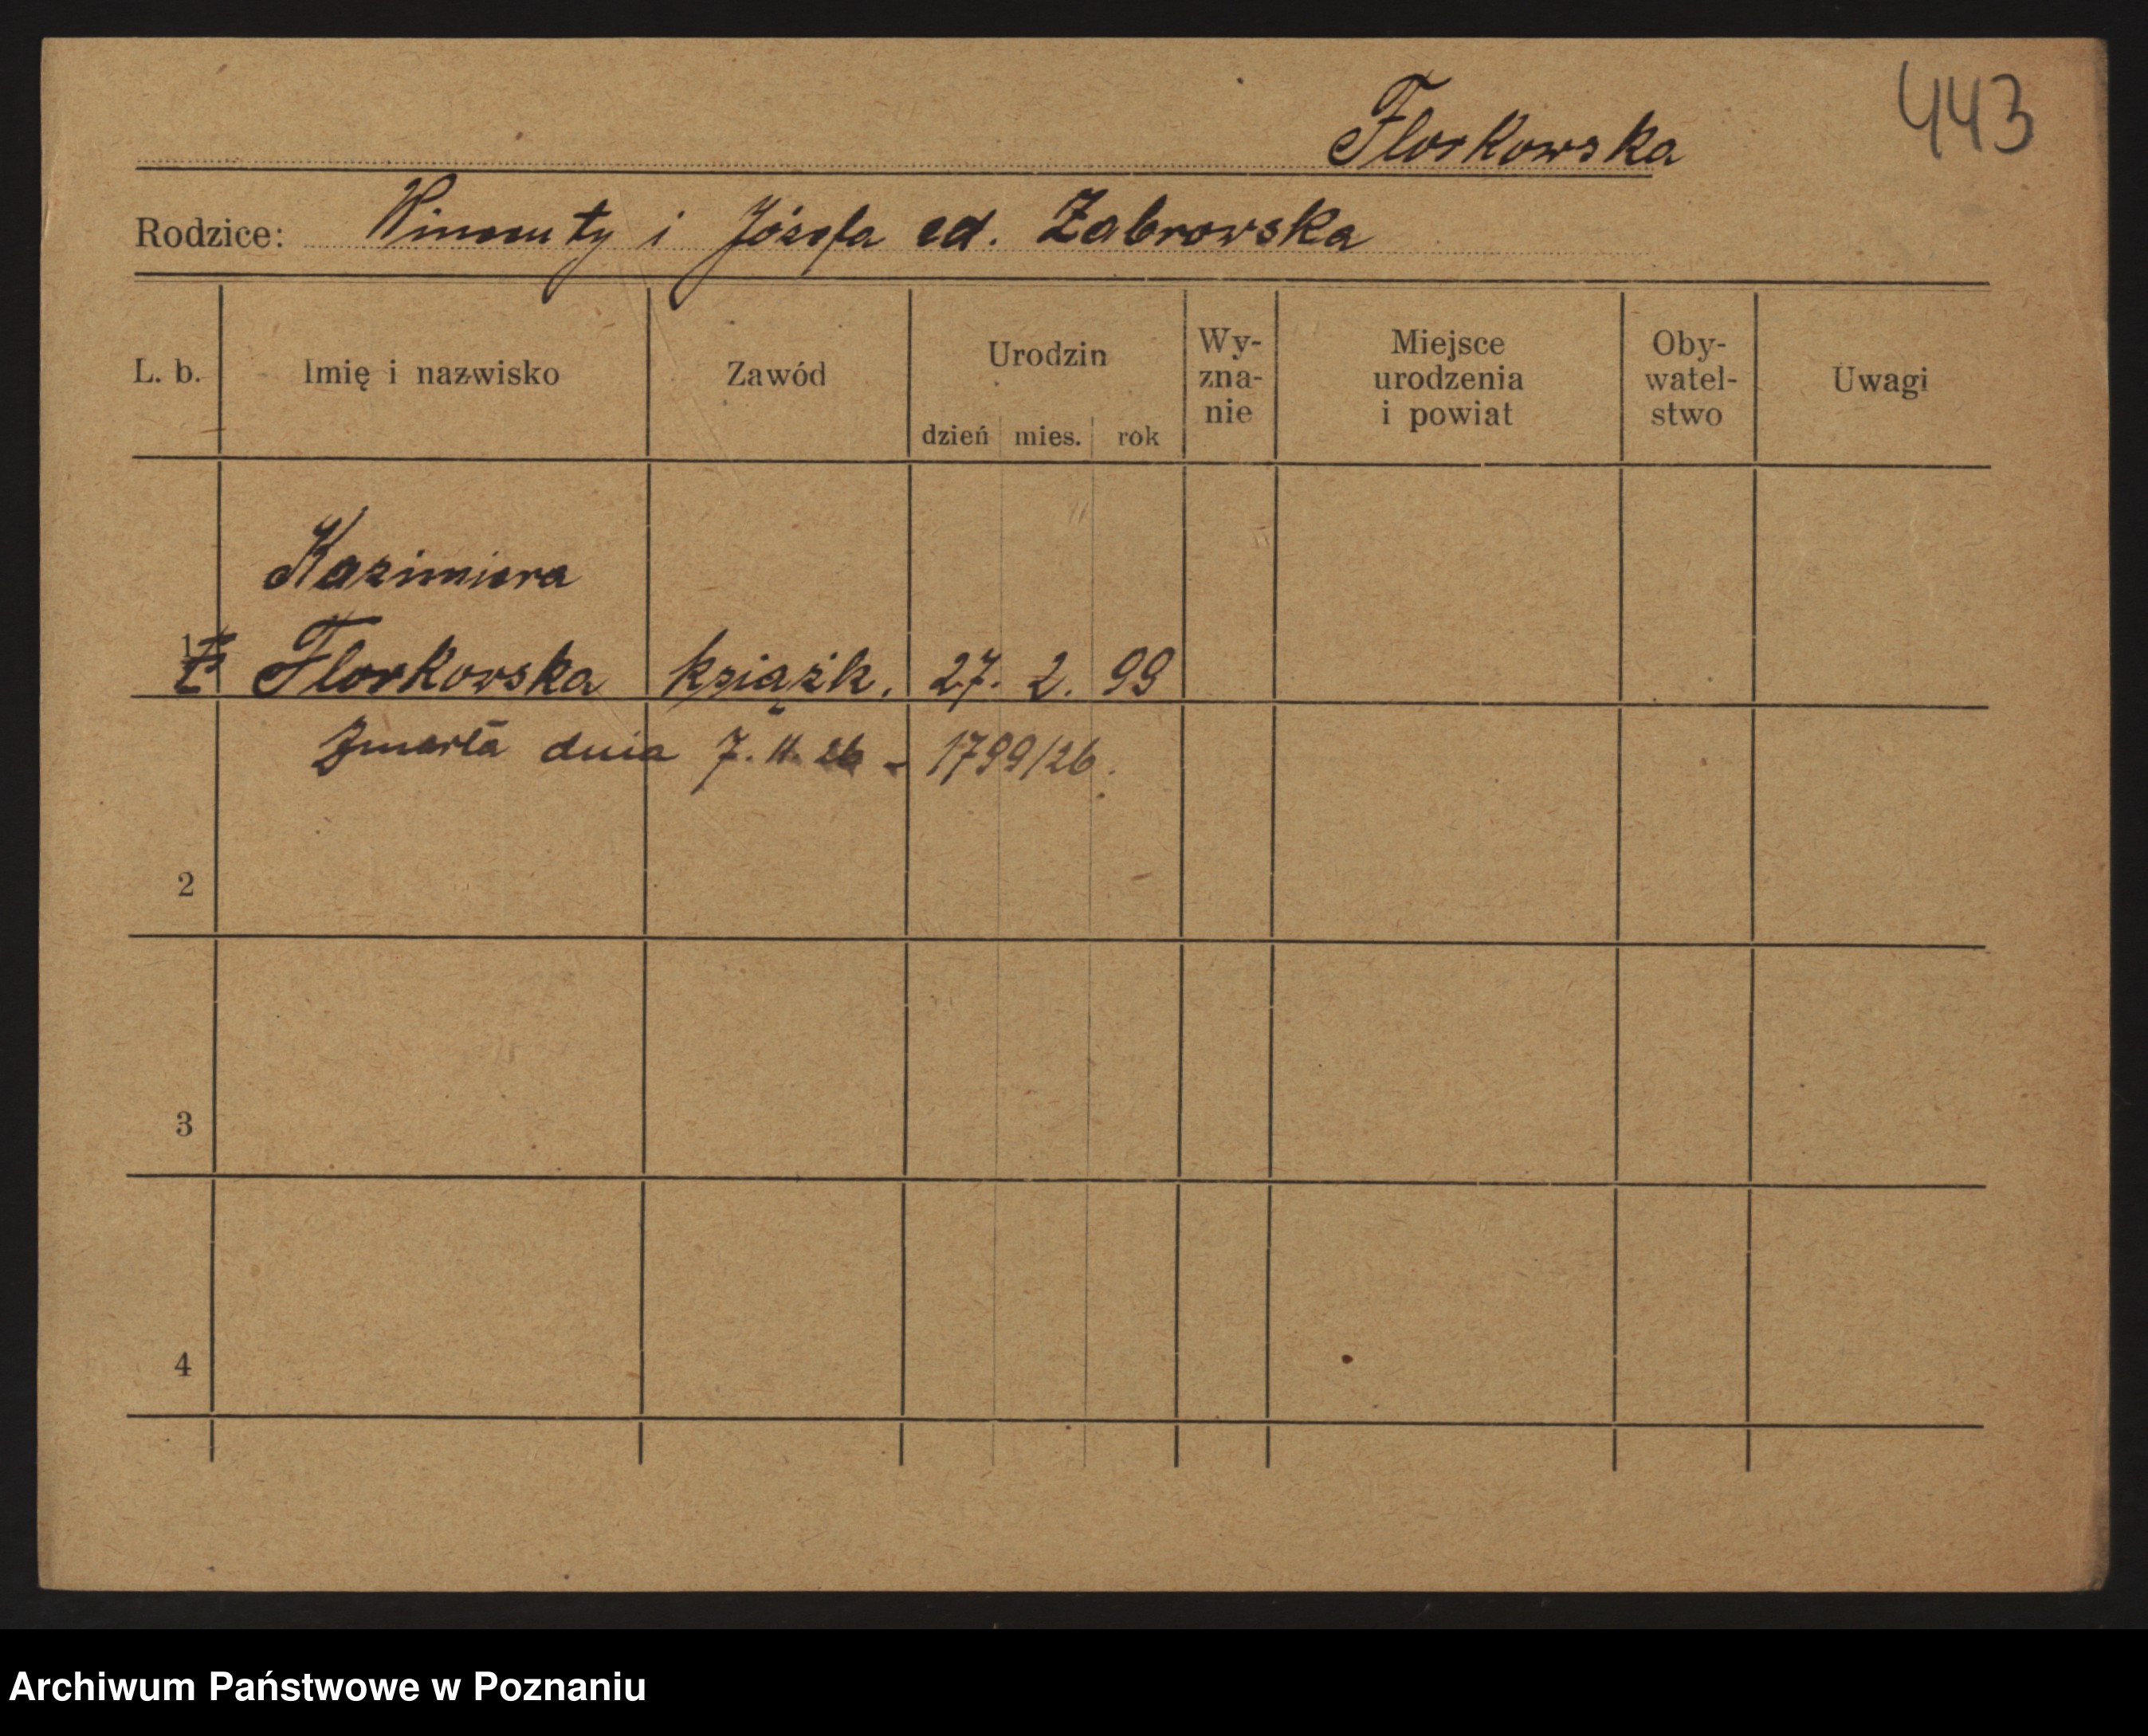 443
Florkowska
Rodzice: Wincenty i Józefa ed. Zabrowska
L. b. Imię i nazwisko Zawód Urodzin dzień mies. rok Wy-zna-nie Miejsce urodzenia i powiat Oby-watel-stwo Uwagi
Kazimiera
1 Florkowska książk. 27. 2. 99
Zmarła dnia 7. 11. 26 - 1799/26.
2
3
4
Archiwum Państwowe w Poznaniu